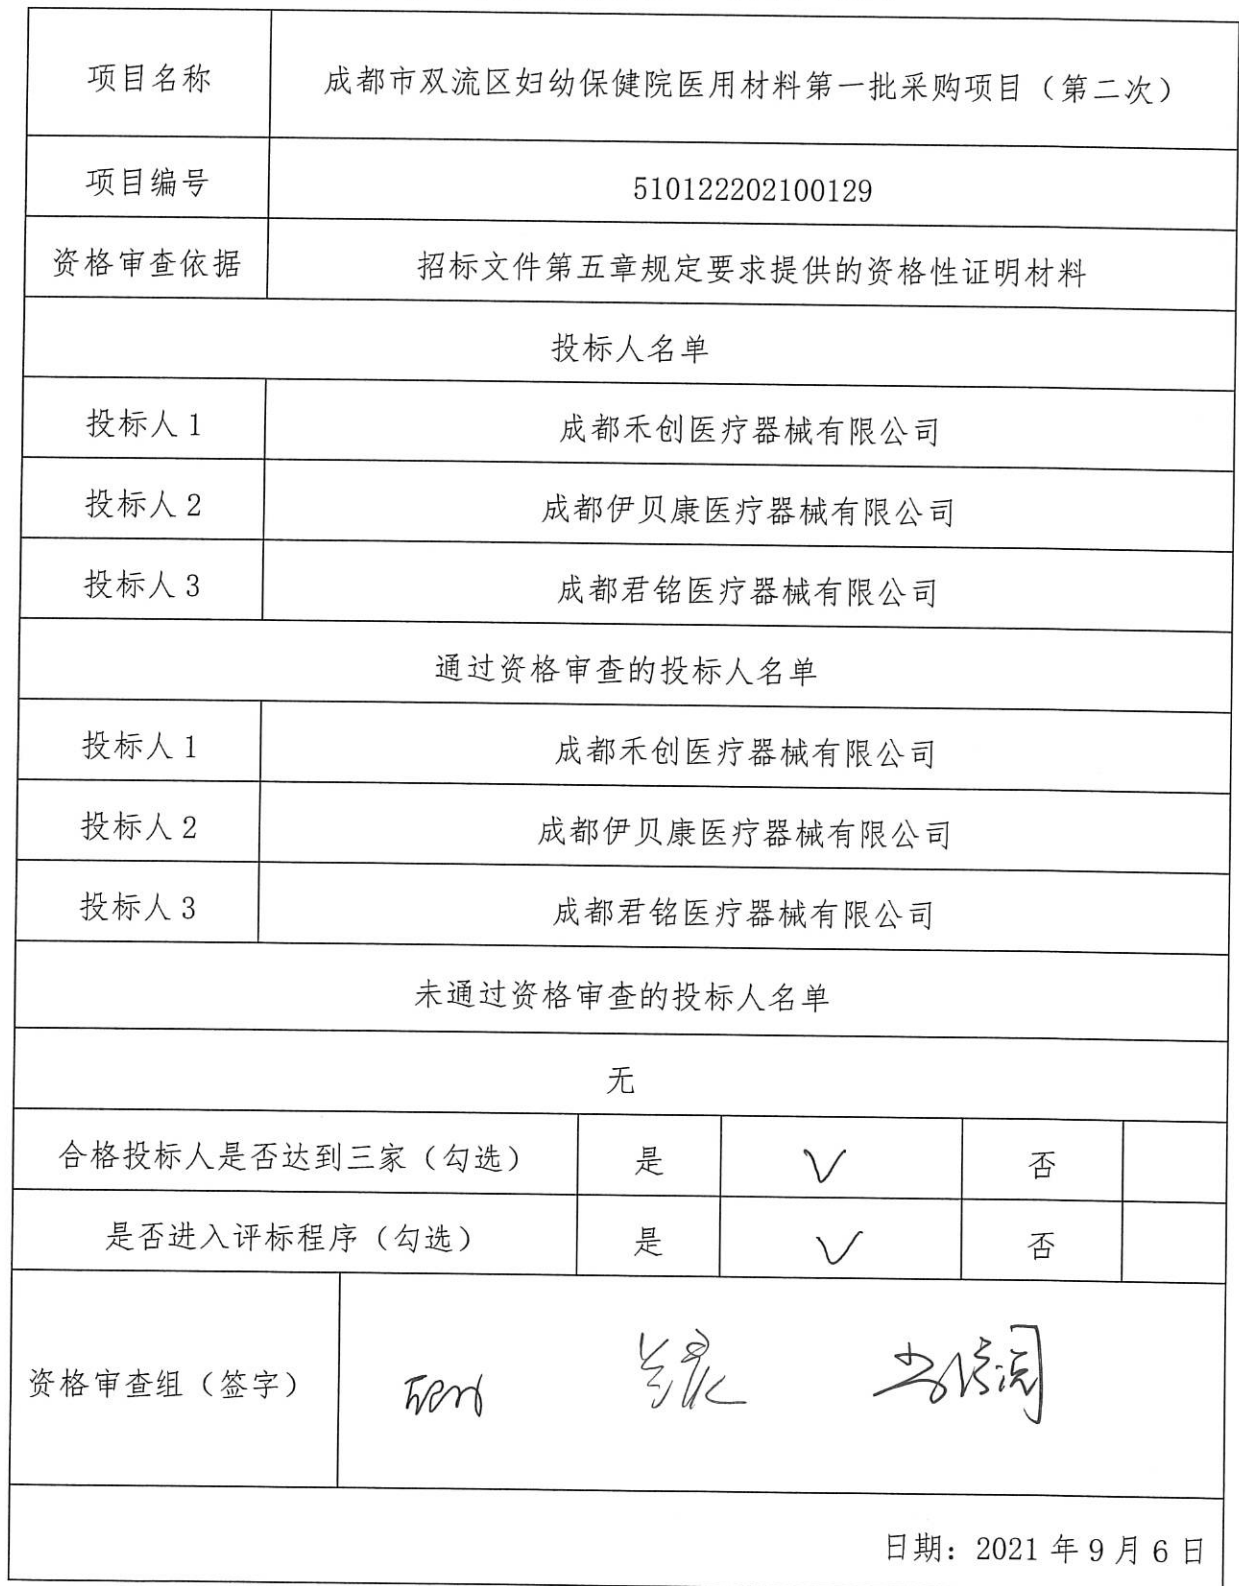 项目名称 成都市双流区妇幼保健院医用材料第一批采购项目（第二次）
项目编号 510122202100129
资格审查依据 招标文件第五章规定要求提供的资格性证明材料
投标人名单
投标人 1 成都禾创医疗器械有限公司
投标人 2 成都伊贝康医疗器械有限公司
投标人 3 成都君铭医疗器械有限公司
通过资格审查的投标人名单
投标人 1 成都禾创医疗器械有限公司
投标人 2 成都伊贝康医疗器械有限公司
投标人 3 成都君铭医疗器械有限公司
未通过资格审查的投标人名单
无
合格投标人是否达到三家（勾选） 是 √ 否
是否进入评标程序（勾选） 是 √ 否
资格审查组（签字）
日期：2021 年 9 月 6 日